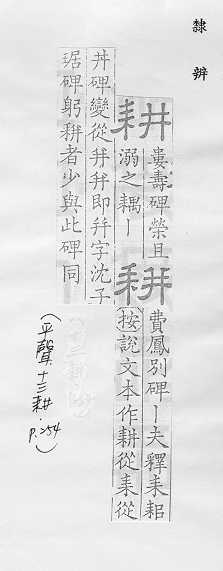 隸辨
耕 婁壽碑榮且
溺之耦丨
耕 費鳳別碑丨夫釋耒耜
按說文本作耕從耒從
井碑變從幷幷即幷字沈子
琚碑躬耕者少與此碑同
(平聲十三耕.
p.254)